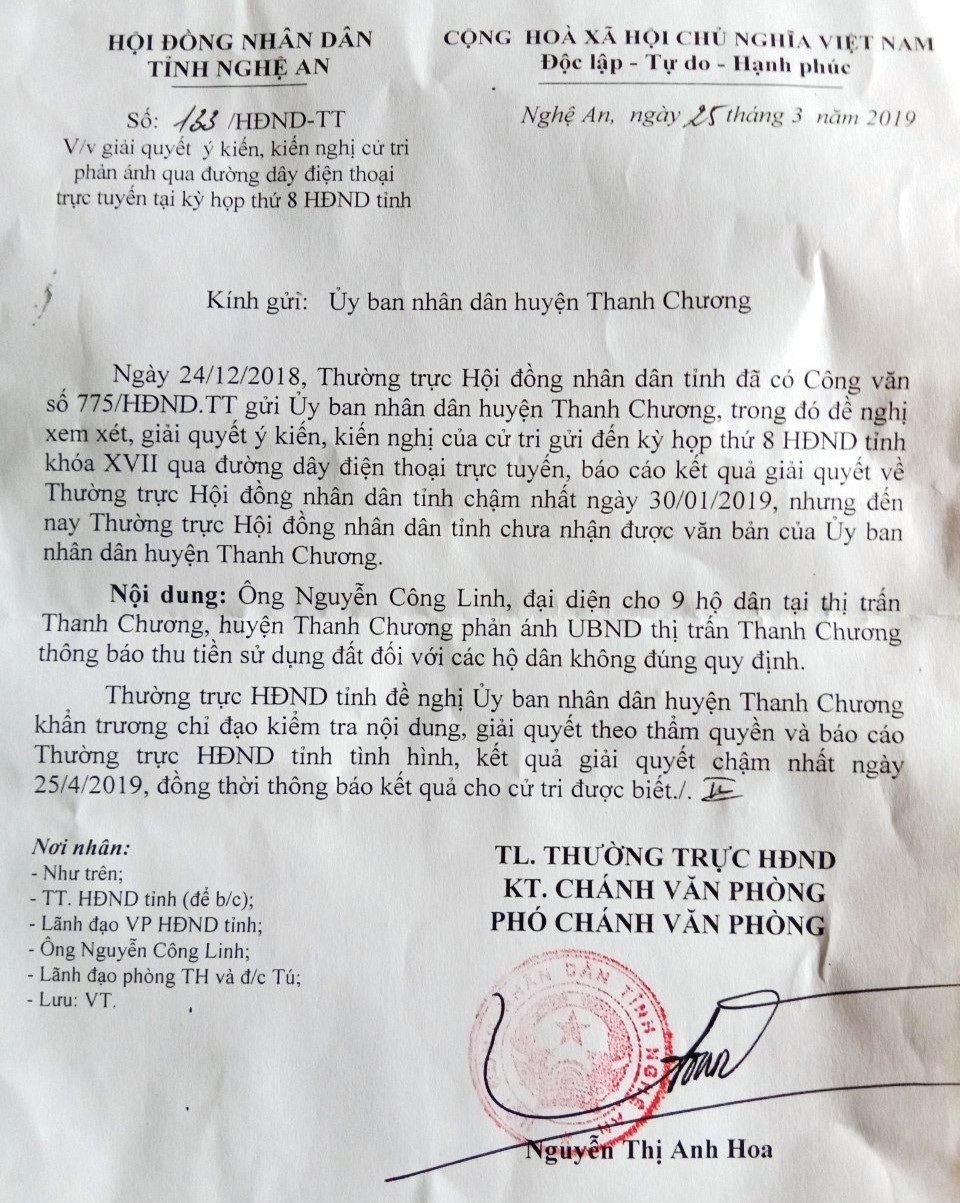 HỘI ĐỒNG NHÂN DÂN
TỈNH NGHỆ AN
CỘNG HOÀ XÃ HỘI CHỦ NGHĨA VIỆT NAM
Độc lập - Tự do - Hạnh phúc
Số: 133 /HĐND-TT
Nghệ An, ngày 25 tháng 3 năm 2019
V/v giải quyết ý kiến, kiến nghị cử tri
phản ánh qua đường dây điện thoại
trực tuyến tại kỳ họp thứ 8 HĐND tỉnh
Kính gửi: Ủy ban nhân dân huyện Thanh Chương
Ngày 24/12/2018, Thường trực Hội đồng nhân dân tỉnh đã có Công văn
số 775/HĐND.TT gửi Ủy ban nhân dân huyện Thanh Chương, trong đó đề nghị
xem xét, giải quyết ý kiến, kiến nghị của cử tri gửi đến kỳ họp thứ 8 HĐND tỉnh
khóa XVII qua đường dây điện thoại trực tuyến, báo cáo kết quả giải quyết về
Thường trực Hội đồng nhân dân tỉnh chậm nhất ngày 30/01/2019, nhưng đến
nay Thường trực Hội đồng nhân dân tỉnh chưa nhận được văn bản của Ủy ban
nhân dân huyện Thanh Chương.
Nội dung: Ông Nguyễn Công Linh, đại diện cho 9 hộ dân tại thị trấn
Thanh Chương, huyện Thanh Chương phản ánh UBND thị trấn Thanh Chương
thông báo thu tiền sử dụng đất đối với các hộ dân không đúng quy định.
Thường trực HĐND tỉnh đề nghị Ủy ban nhân dân huyện Thanh Chương
khẩn trương chỉ đạo kiểm tra nội dung, giải quyết theo thẩm quyền và báo cáo
Thường trực HĐND tỉnh tình hình, kết quả giải quyết chậm nhất ngày
25/4/2019, đồng thời thông báo kết quả cho cử tri được biết./.
Nơi nhân:
- Như trên;
- TT. HĐND tỉnh (để b/c);
- Lãnh đạo VP HĐND tỉnh;
- Ông Nguyễn Công Linh;
- Lãnh đạo phòng TH và đ/c Tú;
- Lưu: VT.
TL. THƯỜNG TRỰC HĐND
KT. CHÁNH VĂN PHÒNG
PHÓ CHÁNH VĂN PHÒNG
NHÂN DÂN TỈNH NGHỆ AN
Nguyễn Thị Anh Hoa